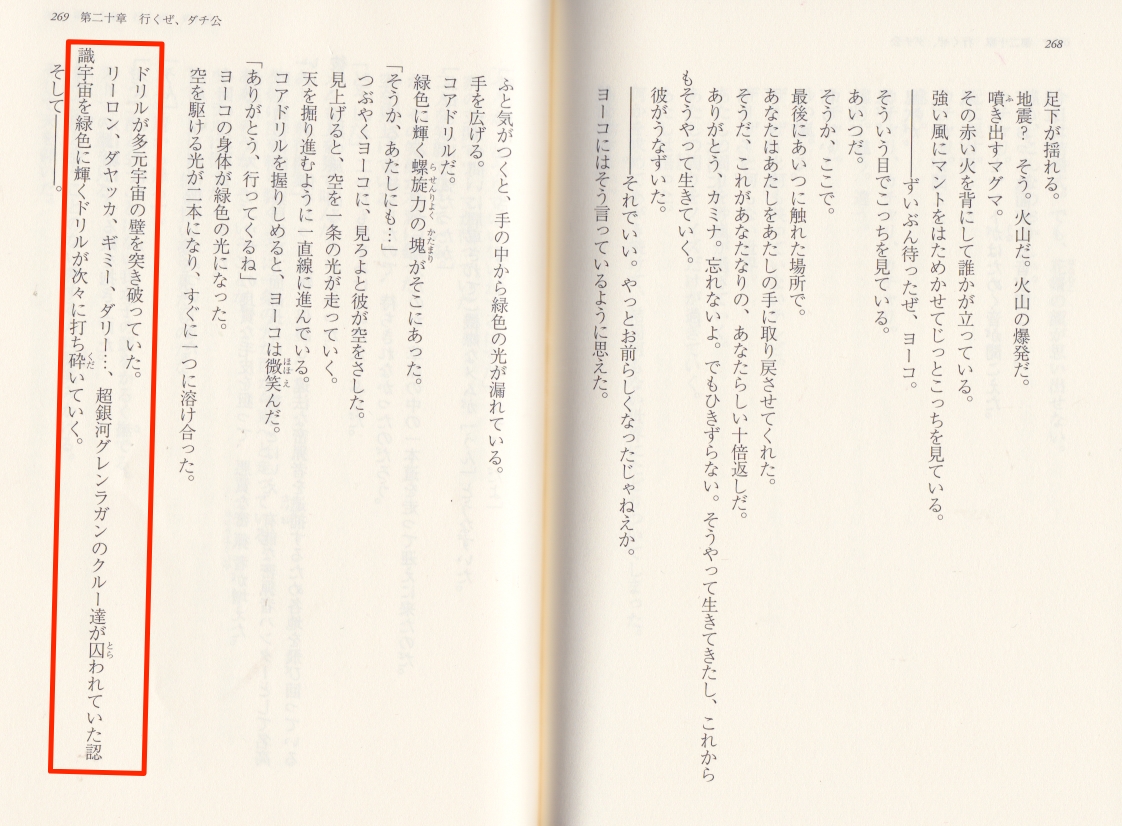 268
足下が揺れる。
地震？　そう。火山だ。火山の爆発だ。
噴き出すマグマ。
その赤い火を背にして誰かが立っている。
強い風にマントをはためかせてじっとこっちを見ている。
――――ずいぶん待ったぜ、ヨーコ。
そういう目でこっちを見ている。
あいつだ。
そうか、ここで。
最後にあいつに触れた場所で。
あなたはあたしをあたしの手に取り戻させてくれた。
そうだ、これがあなたなりの、あなたらしい十倍返しだ。
ありがとう、カミナ。忘れないよ。でもひきずらない。そうやって生きてきたし、これから
もそうやって生きていく。
彼がうなずいた。
――――それでいい。やっとお前らしくなったじゃねえか。
ヨーコにはそう言っているように思えた。
269　第二十章　行くぜ、ダチ公
ふと気がつくと、手の中から緑色の光が漏れている。
手を広げる。
コアドリルだ。
緑色に輝く螺旋力の塊がそこにあった。
「そうか、あたしにも…」
つぶやくヨーコに、見ろよと彼が空をさした。
見上げると、空を一条の光が走っていく。
天を掘り進むように一直線に進んでいる。
コアドリルを握りしめると、ヨーコは微笑んだ。
「ありがとう、行ってくるね」
ヨーコの身体が緑色の光になった。
空を駆ける光が二本になり、すぐに一つに溶け合った。
ドリルが多元宇宙の壁を突き破っていた。
リーロン、ダヤッカ、ギミー、ダリー…、超銀河グレンラガンのクルー達が囚われていた認
識宇宙を緑色に輝くドリルが次々に打ち砕いていく。
そして――――。